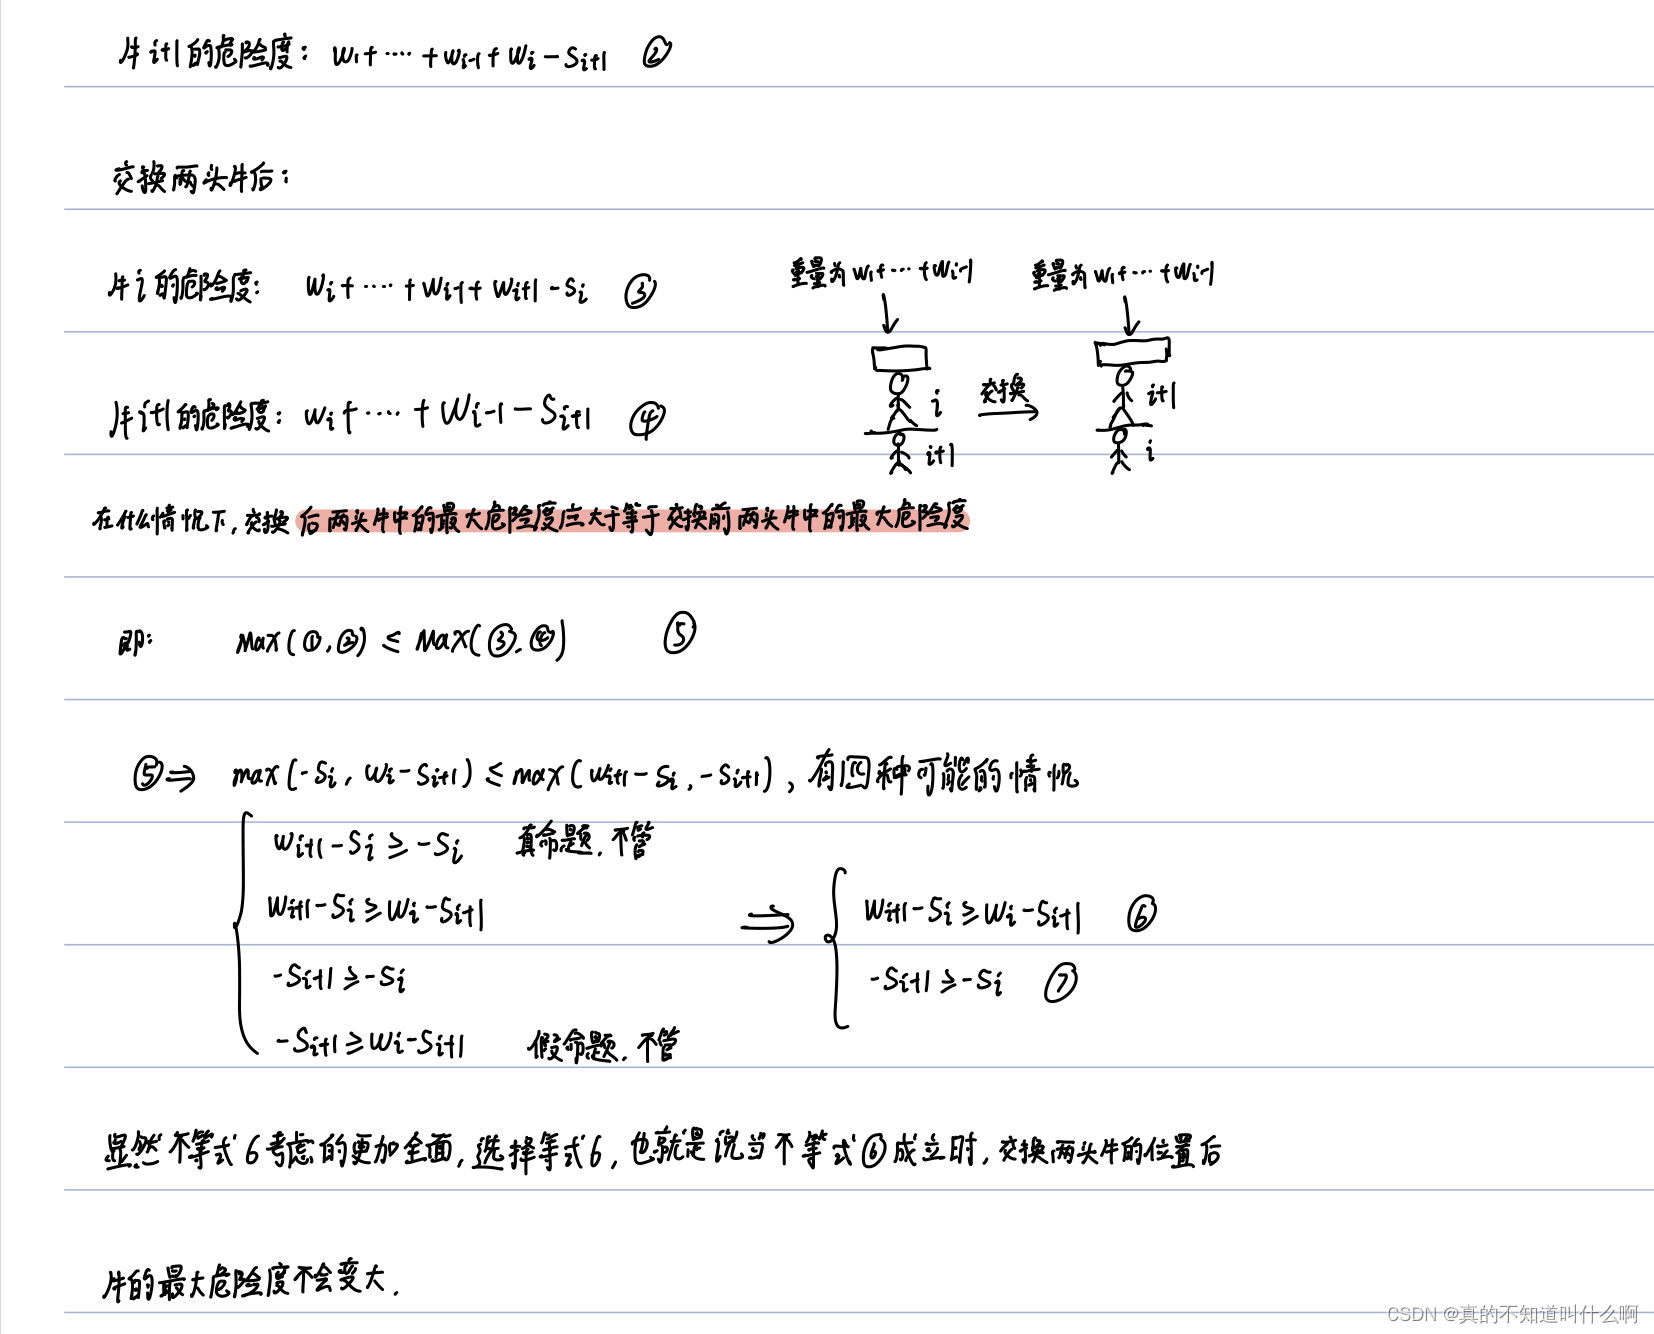 牛i+1的危险度：w₁+····+wᵢ₋₁+wᵢ-sᵢ₊₁ ②
交换两头牛后：
牛i的危险度： wᵢ+····+wᵢ₋₁+wᵢ₊₁-sᵢ ③
重量为w₁+···+wᵢ₋₁
重量为w₁+···+wᵢ₋₁
i
交换
i+1
i+1
i
牛i+1的危险度：wᵢ+····+wᵢ₋₁-sᵢ₊₁ ④
在什么情况下，交换后两头牛中的最大危险度应大于等于交换前两头牛中的最大危险度
即： max(①,②) ≤ max(③,④) ⑤
⑤⇒ max(-sᵢ, wᵢ-sᵢ₊₁) ≤ max(wᵢ₊₁-sᵢ, -sᵢ₊₁)，有四种可能的情况
wᵢ₊₁-sᵢ ≥ -sᵢ 真命题，不管
wᵢ₊₁-sᵢ ≥ wᵢ-sᵢ₊₁ ⇒ wᵢ₊₁-sᵢ ≥ wᵢ-sᵢ₊₁ ⑥
-sᵢ₊₁ ≥ -sᵢ -sᵢ₊₁ ≥ -sᵢ ⑦
-sᵢ₊₁ ≥ wᵢ-sᵢ₊₁ 假命题，不管
显然不等式6考虑的更加全面，选择等式6，也就是说当不等式⑥成立时，交换两头牛的位置后
牛的最大危险度不会变大.
CSDN @真的不知道叫什么啊